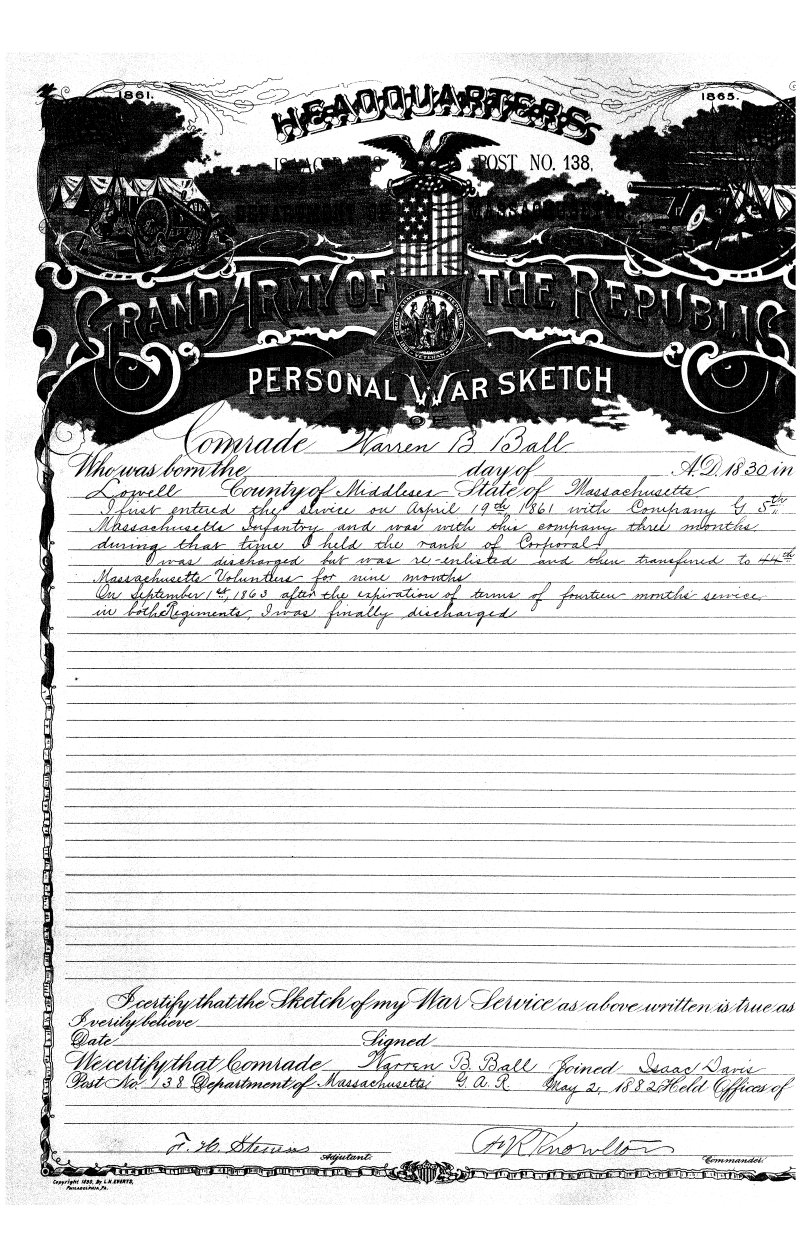 1861.
1865.
HEADQUARTERS
ISAAC DAVIS POST NO. 138,
DEPARTMENT OF MASSACHUSETTS
GRAND ARMY OF THE REPUBLIC
VETERAN
PERSONAL WAR SKETCH
OF
Comrade Warren B Ball
Who was born the day of A.D. 1830 in
Lowell County of Middlesex State of Massachusetts
I first entered the service on April 19th 1861 with Company G 5th
Massachusetts Infantry and was with this company three months
during that time I held the rank of Corporal.
I was discharged but was re-enlisted and then transfered to 44th
Massachusetts Volunteers for nine months
On September 1st, 1863 after the expiration of terms of fourteen months service
in both Regiments, I was finally discharged
I certify that the Sketch of my War Service as above written is true as
I verily believe
Date Signed
We certify that Comrade Warren B. Ball Joined Isaac Davis
Post No. 138 Department of Massachusetts G.A.R. May 2, 1882 Held Offices of
F. H. Stevens
Adjutant.
Knowlton
Commander.
Copyright 1890, By L.H. EVERTS,
PHILADELPHIA, PA.